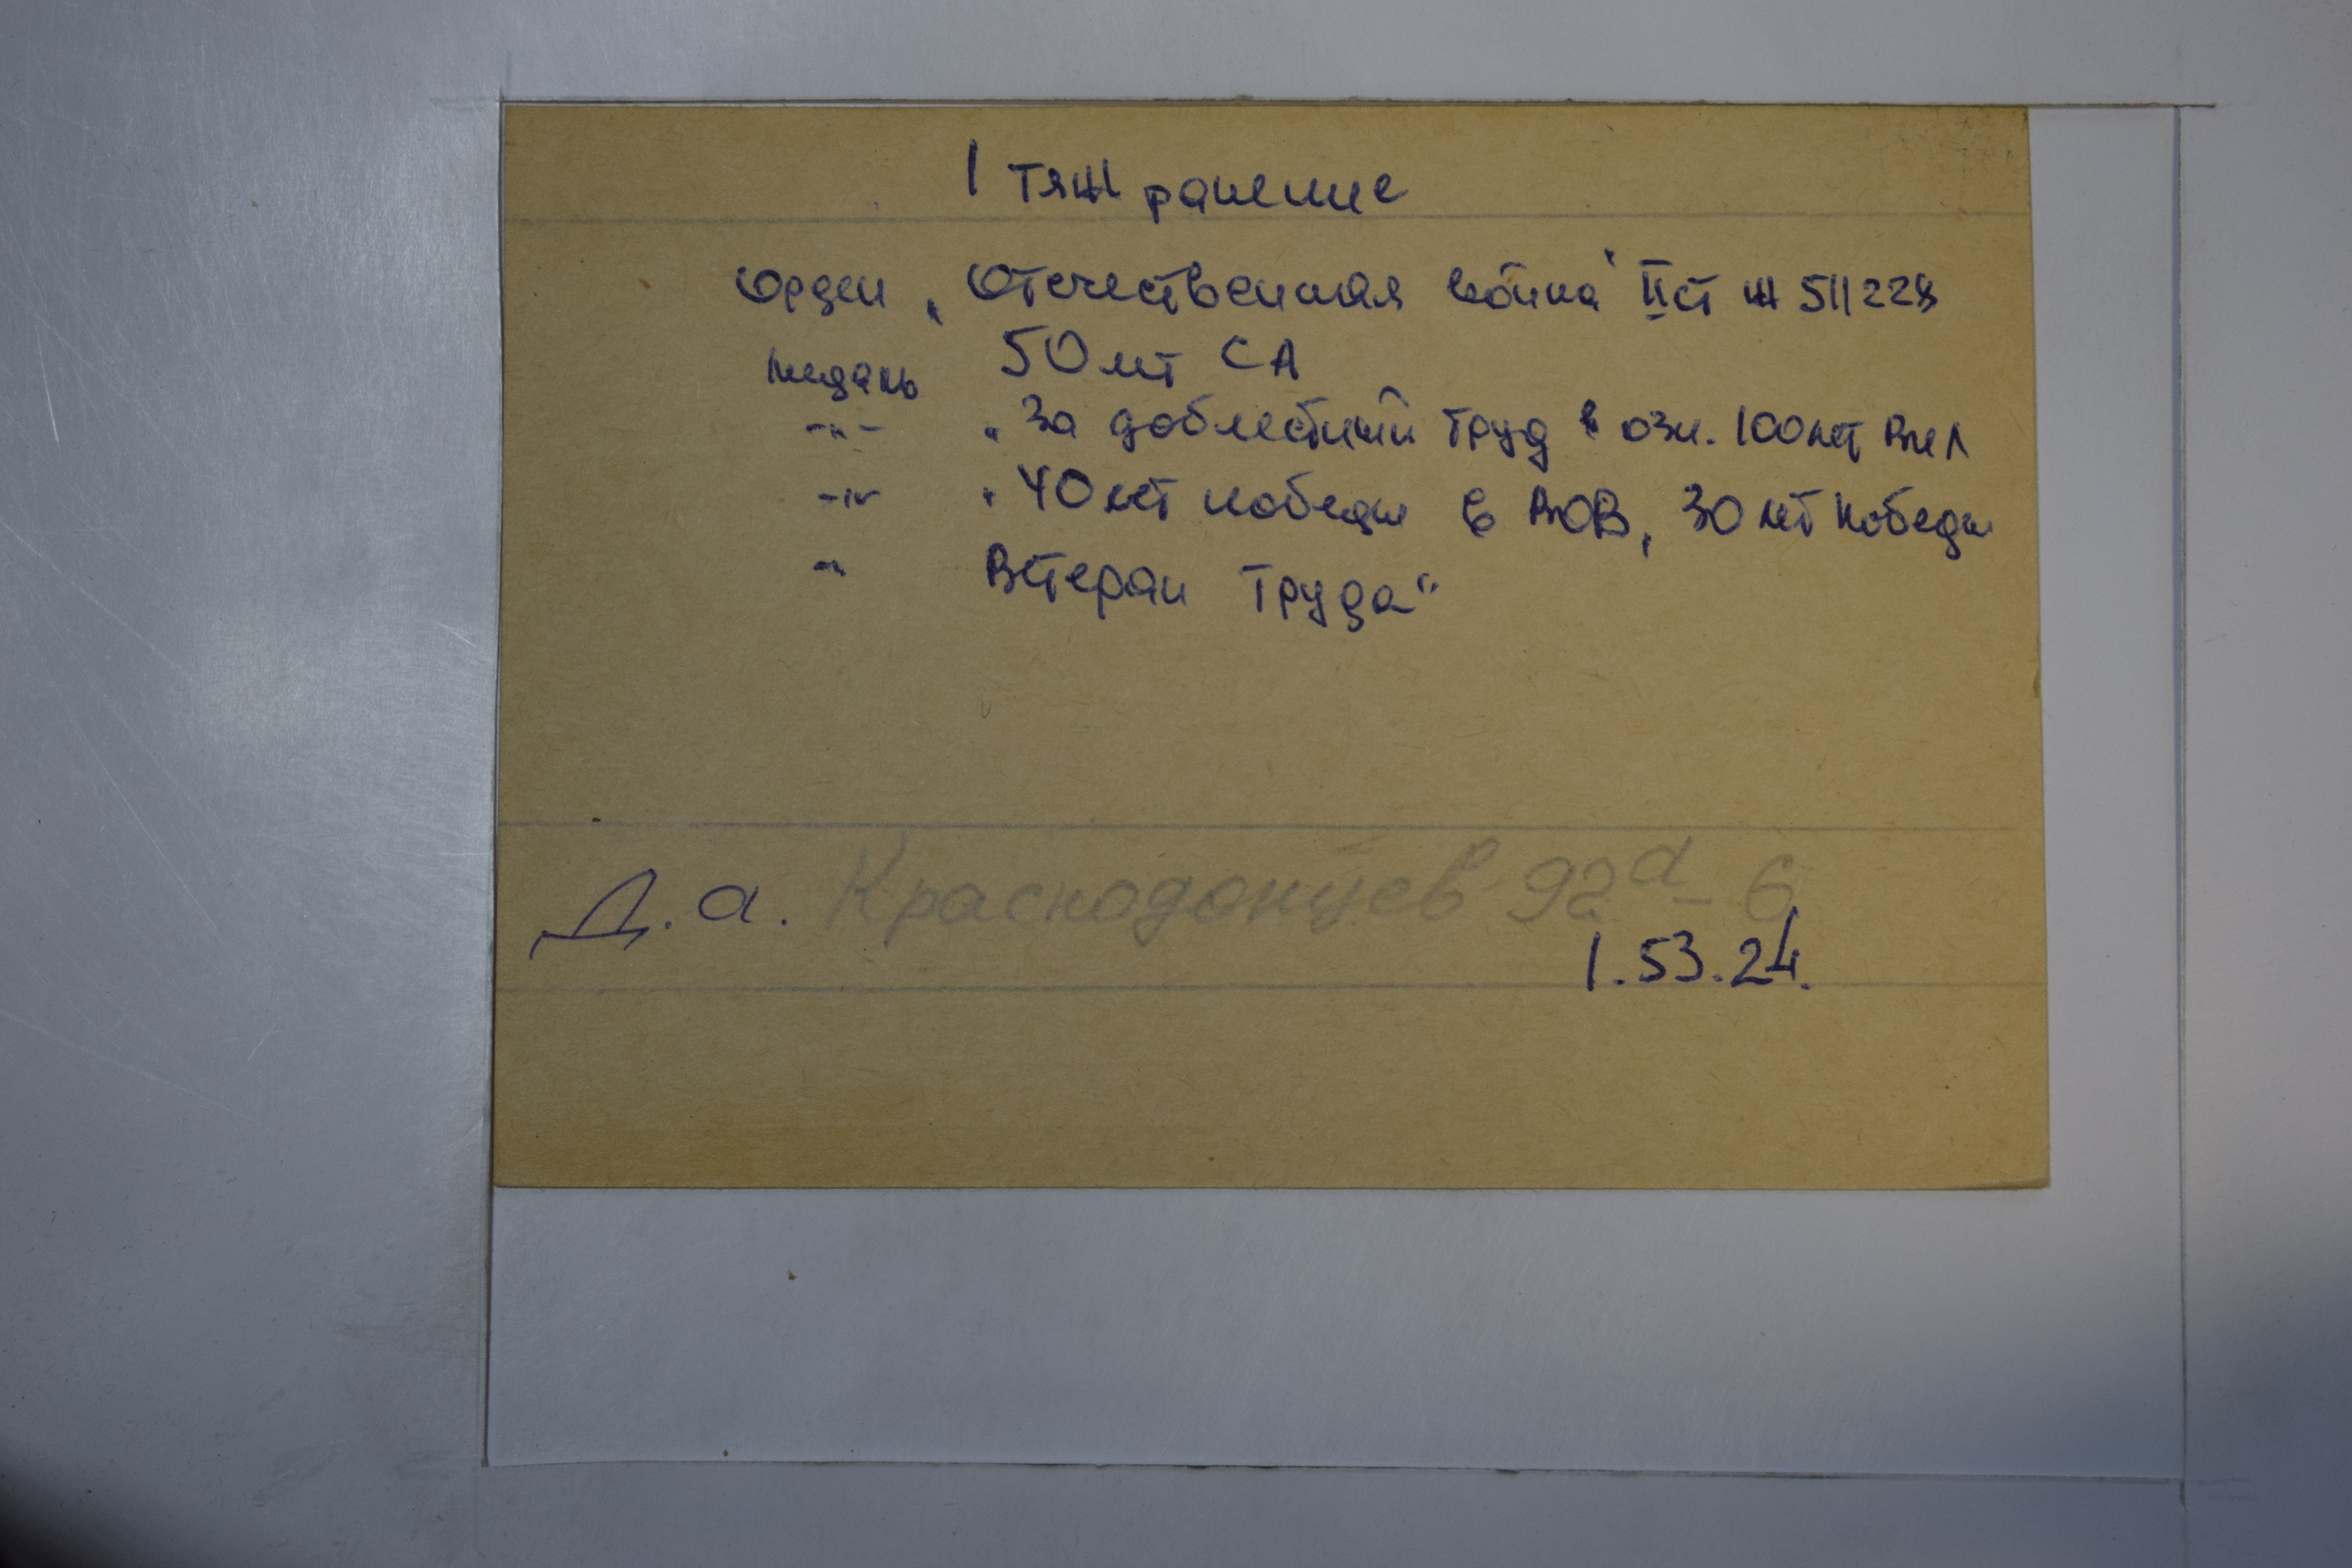 1 тяж ранение
Орден „Отечественная война" II ст Ж 511228
медаль 50 лет СА
-„- „За доблестный труд в озн. 100 лет ВИЛ
-„- „40 лет победы в ВОВ, 30 лет победы
-„- Ветеран труда"
Д.а. Краснодонцев 92а - 6
1.53.24.